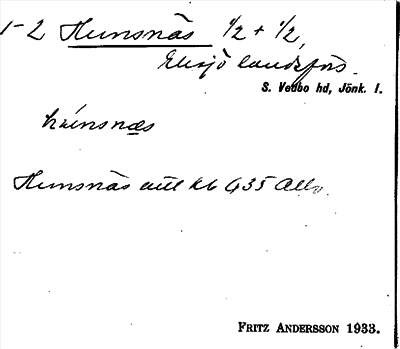 1-2 Hunsnäs 1/2 + 1/2,
Eksjö landsförs.
S. Vedbo hd, Jönk. l.
húnsnæs
Hunsnäs till kb G35 Allm.
FRITZ ANDERSSON 1933.